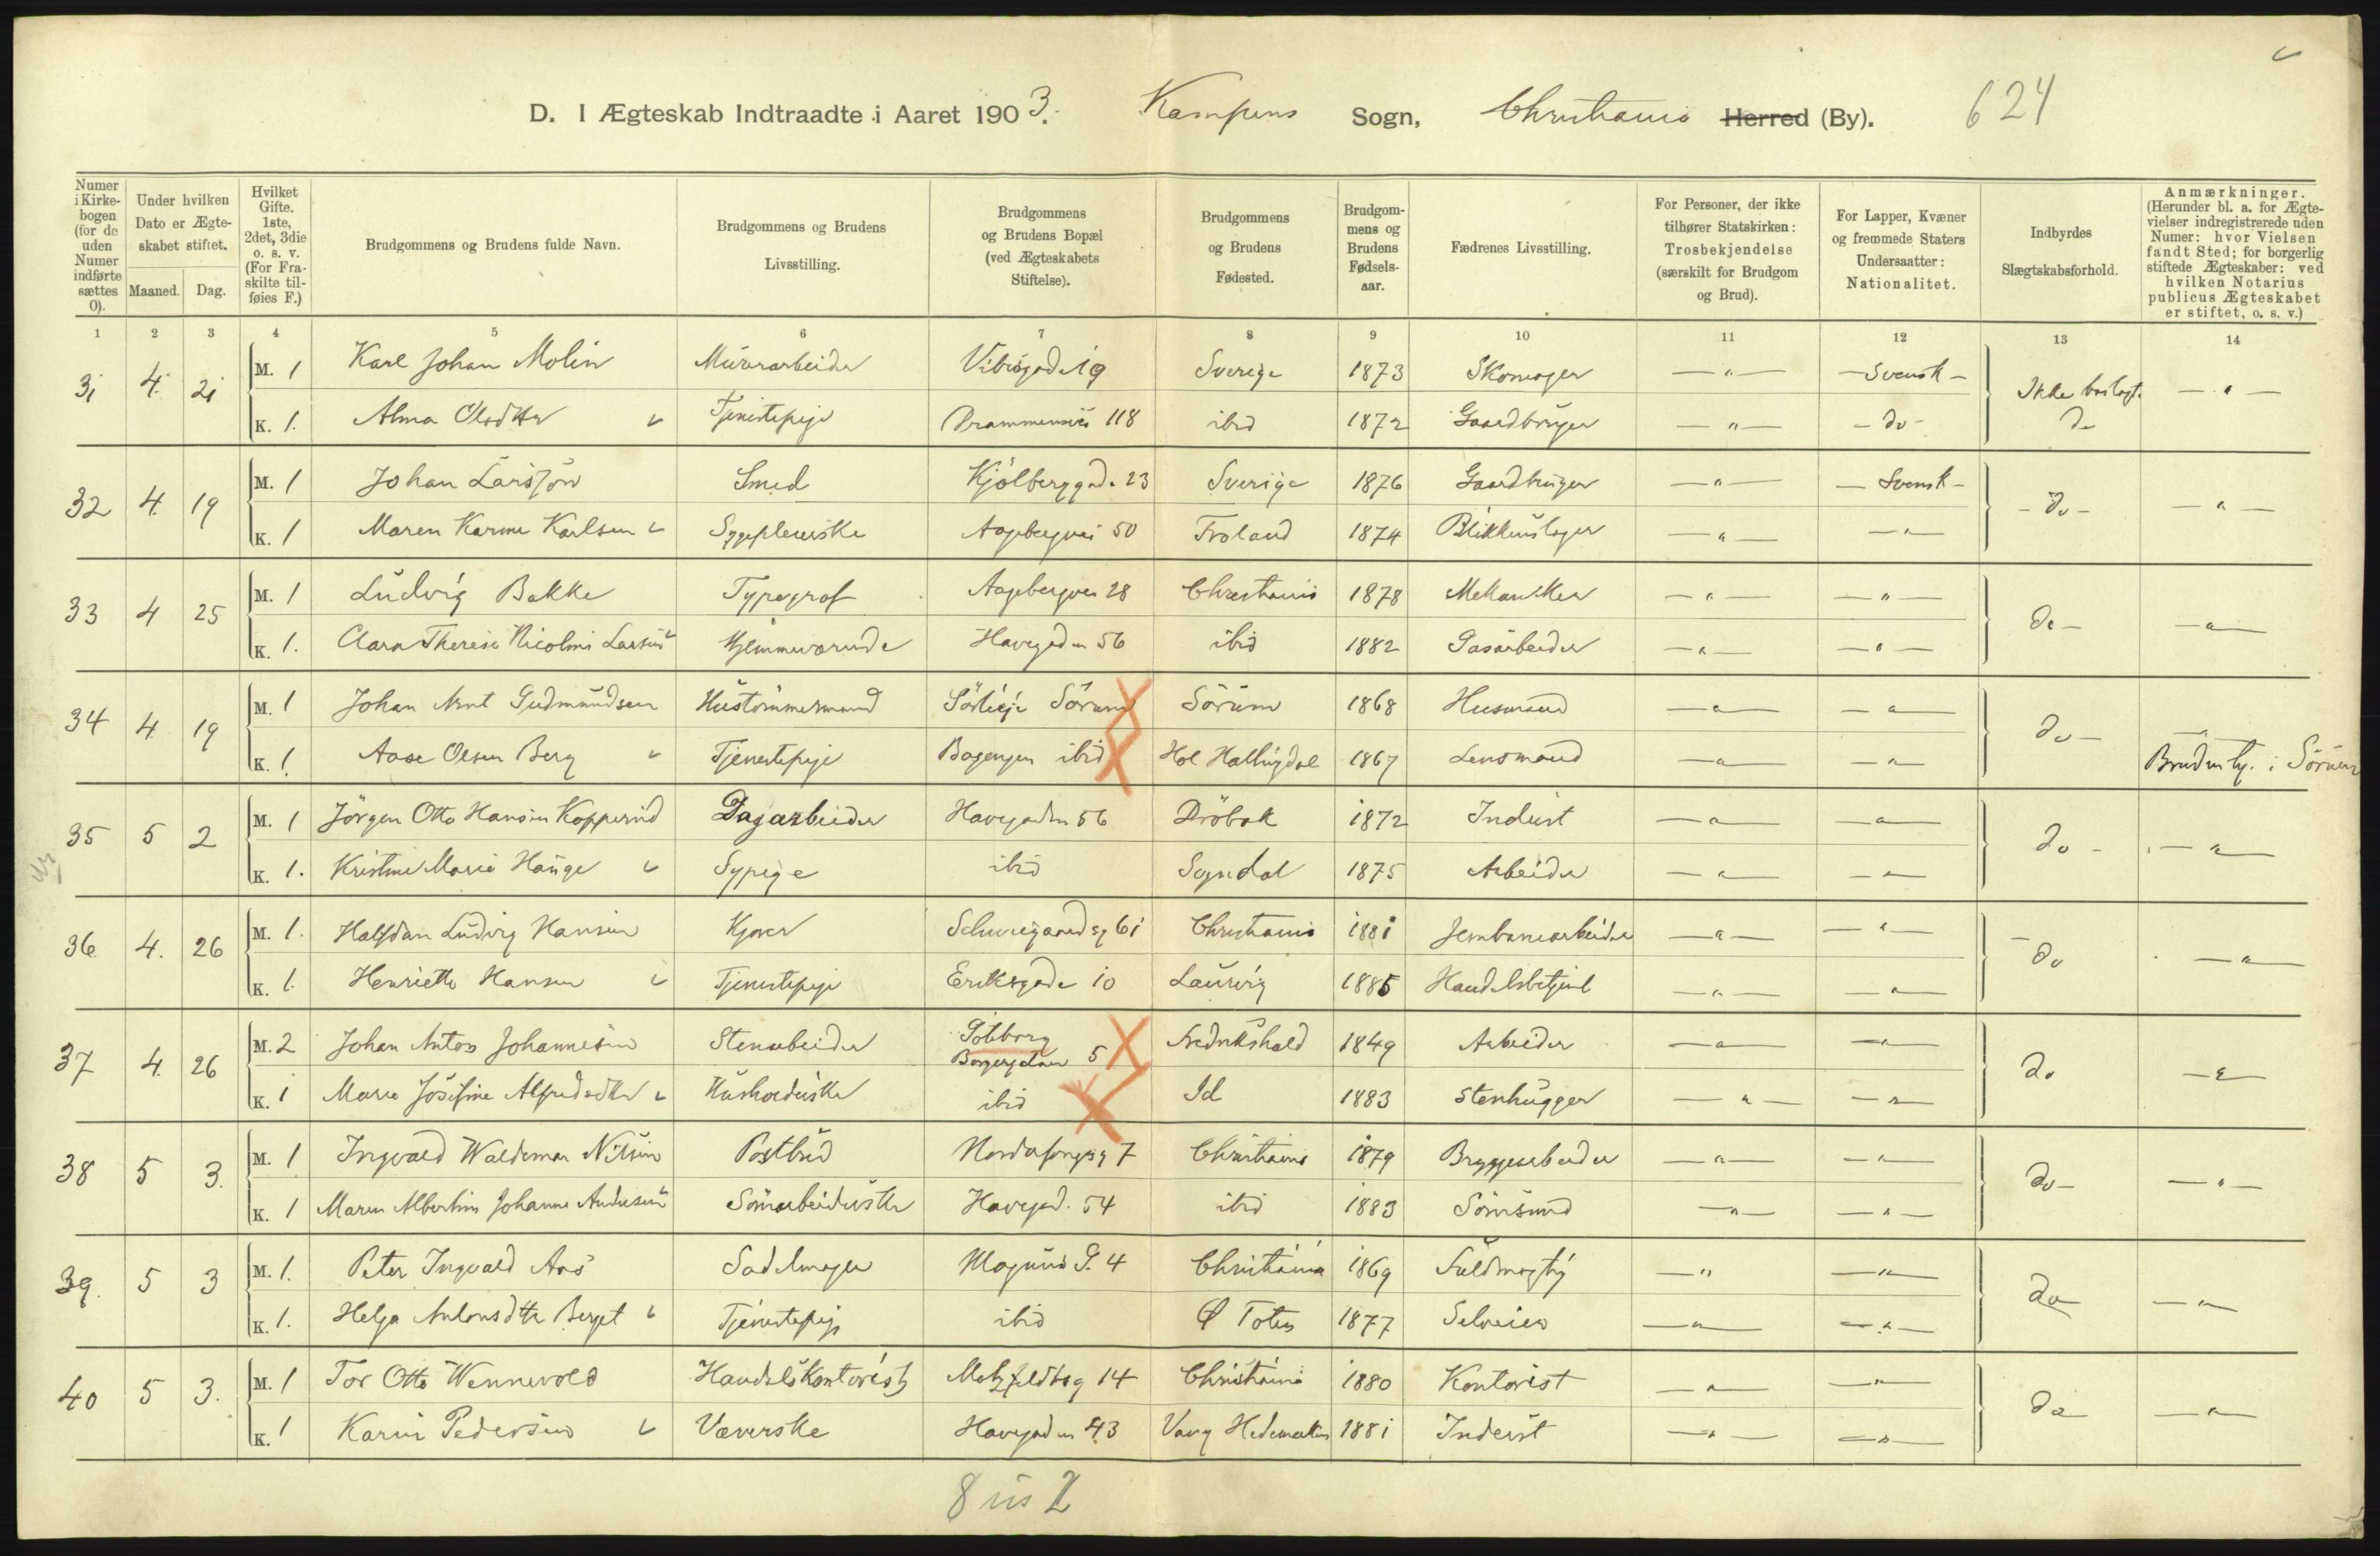 624
D. I Ægteskab Indtraadte i Aaret 1903. Kampens Sogn, Christiania Herred (By).
Numer i Kirkebogen (for de uden Numer indførte sættes 0). | Under hvilken Dato er Ægteskabet stiftet. Maaned. Dag. | Hvilket Gifte. 1ste, 2det, 3die o. s. v. (For Fraskilte tilføies F.) | Brudgommens og Brudens fulde Navn. | Brudgommens og Brudens Livsstilling. | Brudgommens og Brudens Bopæl (ved Ægteskabets Stiftelse). | Brudgommens og Brudens Fødested. | Brudgommens og Brudens Fødselsaar. | Fædrenes Livsstilling. | For Personer, der ikke tilhører Statskirken: Trosbekjendelse (særskilt for Brudgom og Brud). | For Lapper, Kvæner og fremmede Staters Undersaatter: Nationalitet. | Indbyrdes Slægtskabsforhold. | Anmærkninger. (Herunder bl. a. for Ægtevielser indregistrerede uden Numer: hvor Vielsen fandt Sted; for borgerlig stiftede Ægteskaber: ved hvilken Notarius publicus Ægteskabet er stiftet, o. s. v.)
1 2 3 4 5 6 7 8 9 10 11 12 13 14
31 4 21 M. 1 Karl Johan Molin Murerarbeider Vibesgade 19 Sverige 1873 Skomager — " — — Svensk — Ikke beslegt. — " —
K. 1. Alma Olsdtter Tjenestepige Drammensvei 118 ibid 1872 Gaardbruger — " — — do — do
32 4 19 M. 1 Johan Larsson Smed Kjølberggade 23 Sverige 1876 Gaardbruger — " — — Svensk — — do — — " —
K. 1 Maren Karine Karlsen Sygepleierske Aagebergvei 50 Froland 1874 Blikkenslager — " — — " —
33 4 25 M. 1 Ludvig Bakke Typograf Aagebergvei 28 Christiania 1878 Mekaniker — " — — " — do — — " —
K. 1. Clara Therese Nicoline Larsen Hjemmeværende Havegaden 56 ibid 1882 Gasarbeider — " — — " —
34 4 19 M. 1 Johan Arnt Gudmundsen Hustømmermand Sörum Sörum 1868 Husmand — " — — " — do — — " —
K. 1 Aase Olsen Berg Tjenestepige ibid Hol Hallingdal 1867 Lensmand — " — — " — i Sörum
35 5 2 M. 1 Jörgen Otto Hansen Kopperud Dagarbeider Havegaden 56 Dröbak 1872 Inderst — " — — " — do — — " —
K. 1. Kristine Marie Hauge Sypige ibid Sogndal 1875 Arbeider — " — — " —
36 4. 26 M. 1. Halfdan Ludvig Hansen Kjører Schweigaardsg 61 Christiania 1881 Jernbanearbeider — " — — " — do — " —
K. 1. Henriette Hansen Tjenestepige Eriksgade 10 Laurvig 1885 Handelsbetjent — " — — " —
37 4. 26 M. 2 Johan Anton Johannesen Stenarbeider Göteborg
Borgergaden 5 Fredrikshald 1849 Arbeider — " — — " — do — " —
K. 1 Marie Josefine Alfredsdtter Husholderske ibid Id 1883 Stenhugger — " — — " —
38 5 3. M. 1 Ingvald Waldemar Nilsen Postbud Nordafongsg 7 Christiania 1879 Bryggearbeider — " — — " — do — — " —
K. 1 Maren Albertine Johanne Andersen Sömarbeiderske Havegad. 54 ibid 1883 Sömsmed — " — — " —
39. 5 3 M. 1. Peter Ingvald Aas Sadelmager Magnus G. 4 Christiania 1869 Fuldmægtig — " — — " — do — " —
K. 1. Helga Antonsdtr Berget Tjenestepige ibid Ø Toten 1877 Selveier — " — — " —
40 5 3. M. 1 Tor Otto Wennevold Handelskontorist Motzfeldtsg 14 Christiania 1880 Kontorist — " — — " — do — " —
K. 1 Karin Pedersen Væverske Havegaden 43 Vang Hedemarken 1881 Inderst — " — — " —